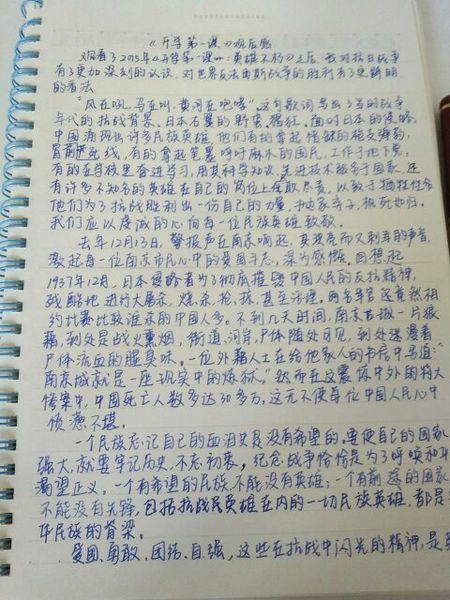 《开学第一课》观后感
观看了2015年《开学第一课·英雄不朽》之后,我对抗日战争
有了更加深刻的认识,对世界反法西斯战争的胜利有了更鲜明
的看法。
“风在吼,马在叫,黄河在咆哮”这句歌词写出了当时战争
年代的抗战背景、日本右翼的野蛮、猖狂。面对日本的侵略,
中国涌现出许多民族英雄,他们有的拿起
冒前死线,有的拿起笔墨呼吁麻木的国民,工作于地下党,
有的在学校里奋进学习,用其科学知识、先进技术服务于国家,还
有许多不知名的英雄在自己的岗位上尽取尽责,以致于牺牲性命
他们为了抗战胜利出一份自己的力量,抛家弃子,视死如归,
我们应以虔诚的心向每一位民族英雄致敬。
去年12月13日,警报声在南京响起,其嘹亮而又刺耳的声音,
激起每一位南京市民心中的爱国斗志,深为感慨,回想起
1937年12月,日本侵略者为了彻底摧毁中国人民的反抗精神,
残酷地进行大屠杀,烧、杀、抢、掠,甚至活埋,两名军官还竟然相
约比赛比较谁杀的中国人多。不到几天时间,南京古城一片狼
藉,到处是战火熏烟,街道、河岸,尸体随处可见,到处弥漫着
尸体流血的腥臭味。一位外籍人士在给他家人的书信中写道:“
南京城就是一座现实中的炼狱。”然而在这震惊中外的特大
惨案中,中国死亡人数多达30多万,这无不使每位中国人民心中
愤懑不堪。
一个民族忘记自己的血泪史是没有希望的,要使自己的国家
强大,就要牢记历史,不忘初衷,纪念战争恰恰是为了呼唤和平
渴望正义。一个有希望的民族不能没有英雄;一个有前途的国家
不能没有先锋,包括抗战民英雄在内的一切民族英雄,都是
华民族的脊梁。
爱国、勇敢、团结、自强,这些在抗战中闪光的精神,是